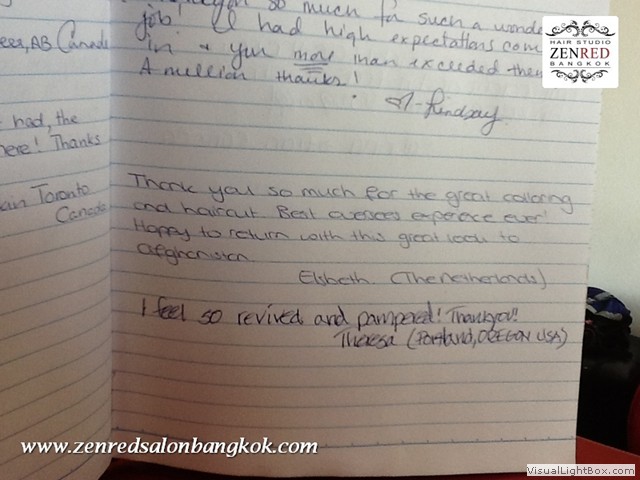 so much for such a wonde
job! I had high expectations com
in & you more than exceeded the
A million thanks!
♡ Lindsay
eer, AB Canada
had, the
here! Thanks
an Toronto
Canada
Thank you so much for the great coloring
and haircut. Best overseas experience ever!
Happy to return with this great look to
Afghanistan.
Elsbeth. (The Netherlands)
I feel so revived and pampered! Thankyou!!
Theresa (Portland, OREGON USA)
HAIR STUDIO
ZENRED
BANGKOK
www.zenredsalonbangkok.com
VisualLightBox.com